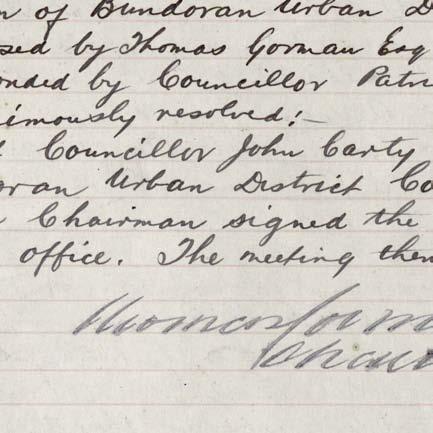 n of Bundoran Urban D
sed by Thomas Gorman Esq
onded by Councillor Patri
imously resolved:-
Councillor John Carty
oran Urban District Co
Chairman signed the
office. The meeting then
Thomas Gorm
Chair